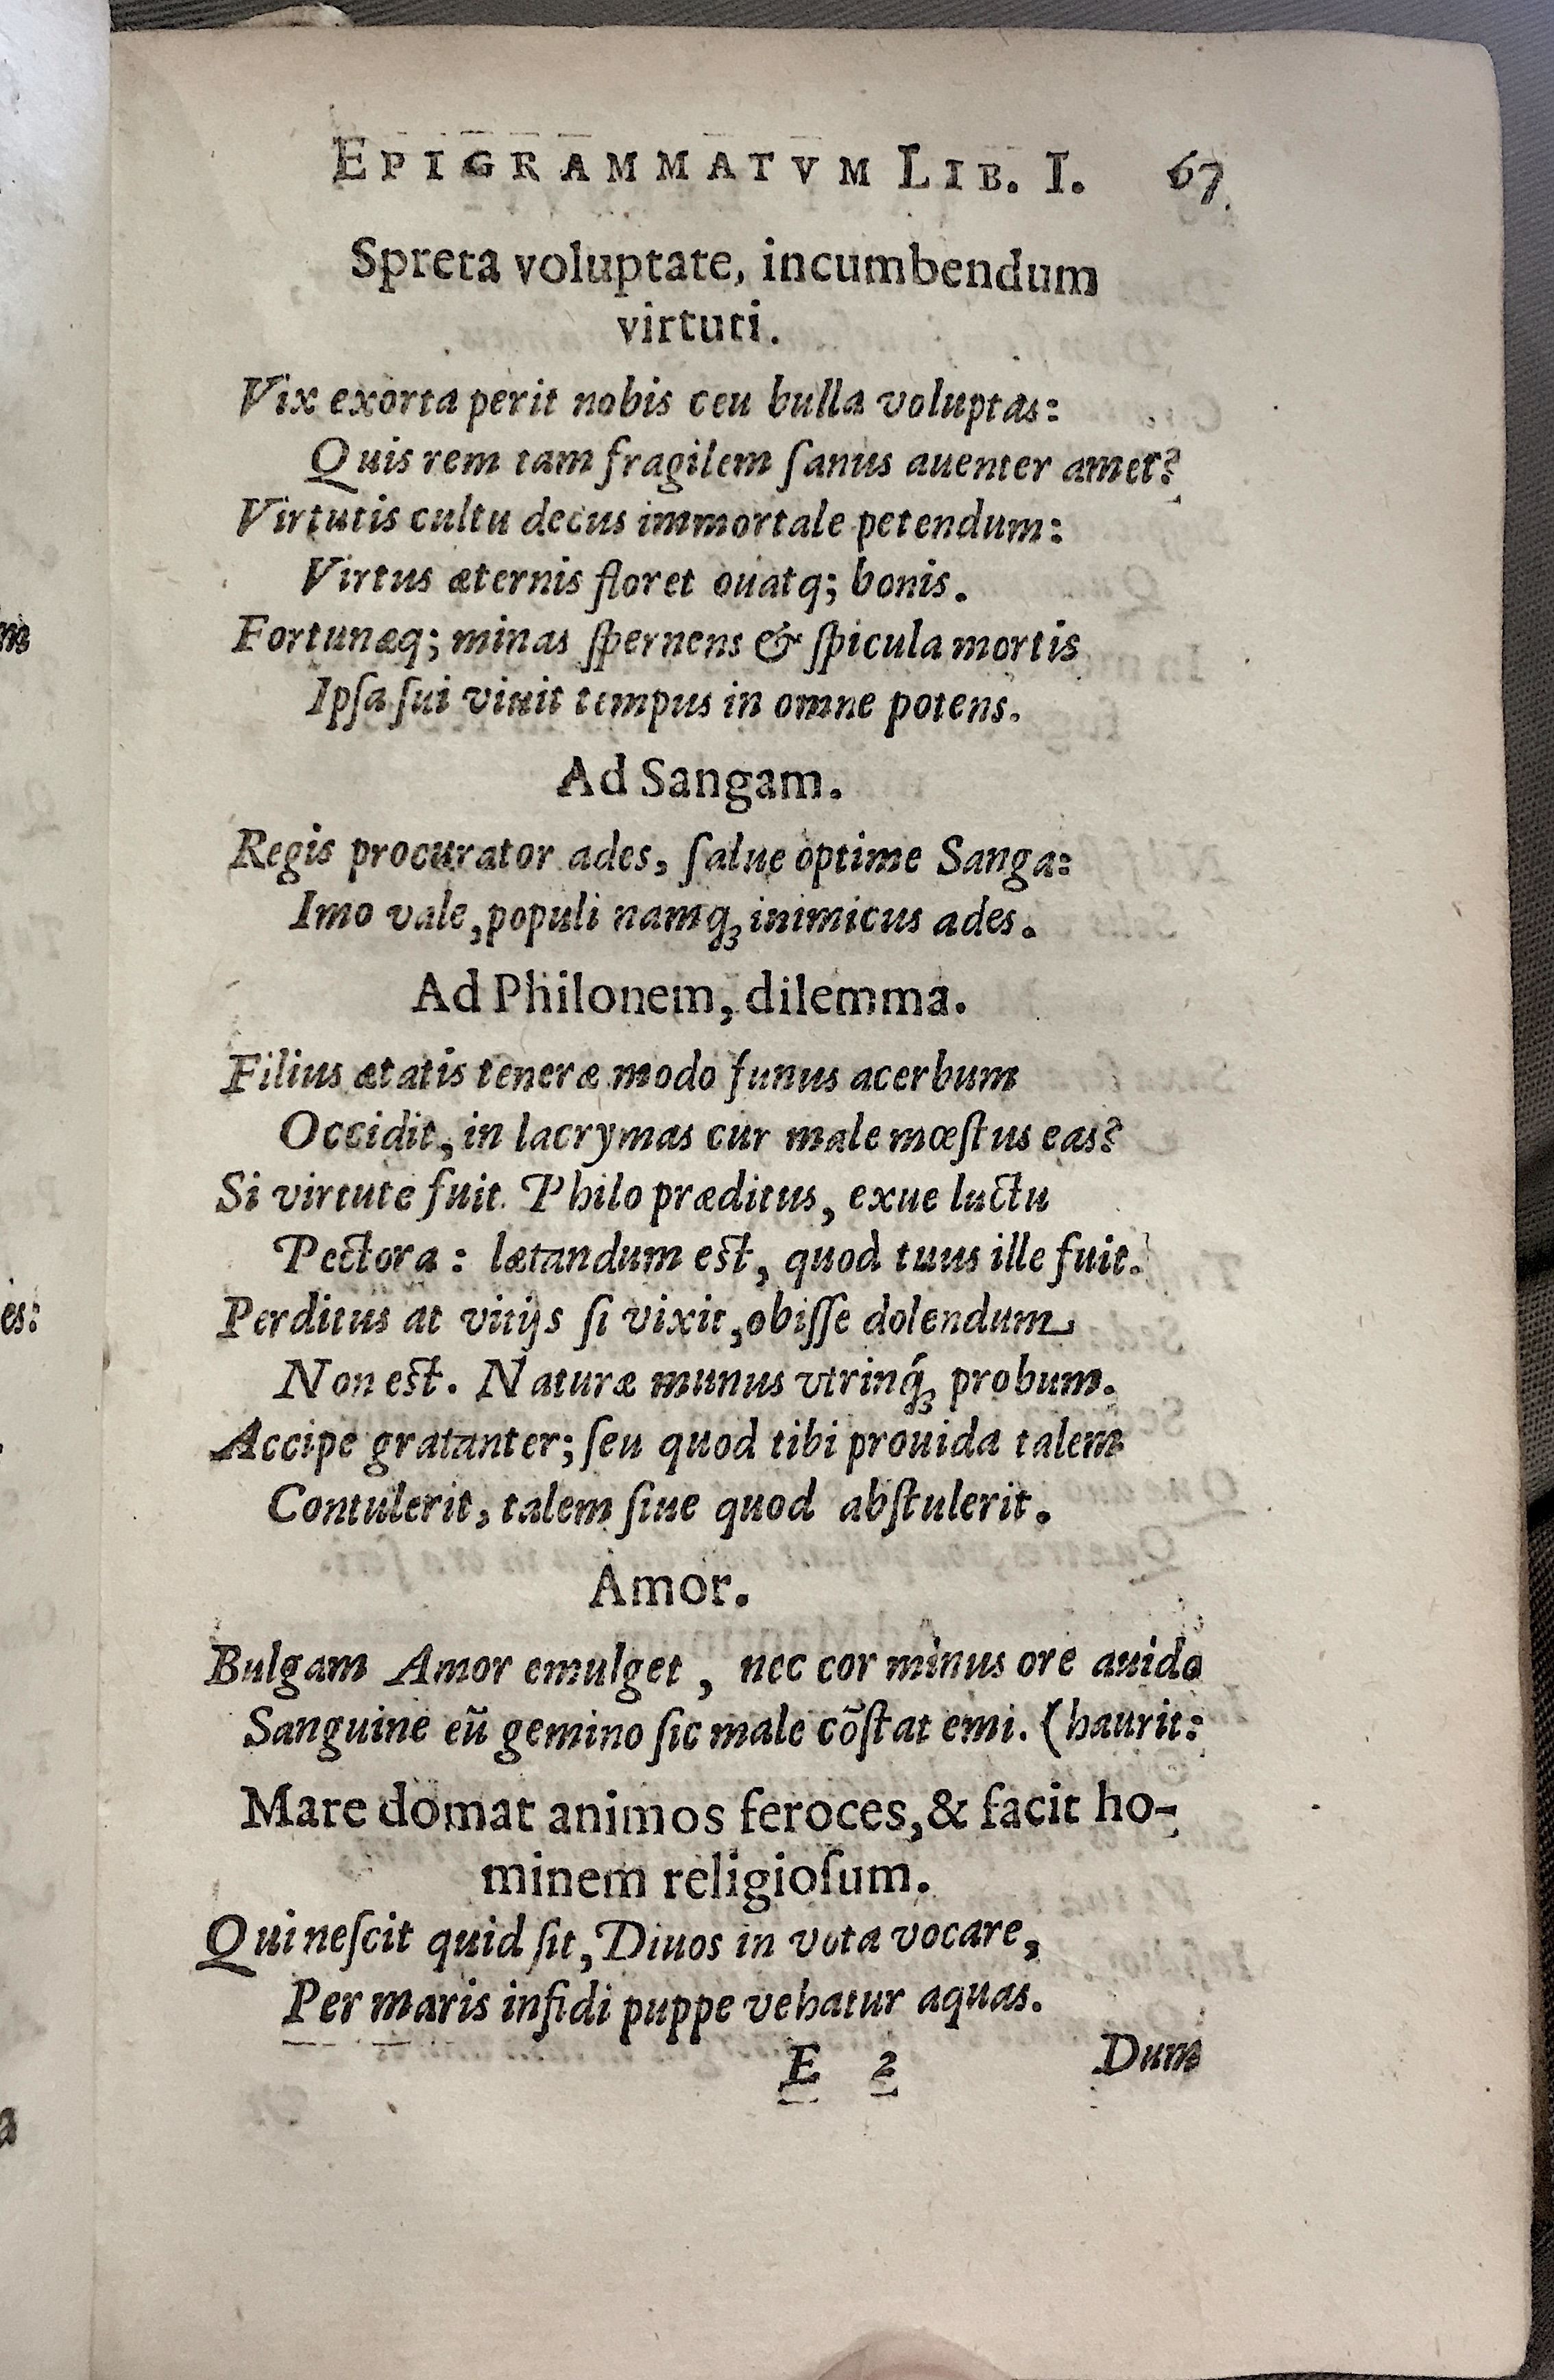 EPIGRAMMATVM LIB. I. 67
Spreta voluptate, incumbendum
virtuti.
Vix exorta perit nobis ceu bulla voluptas:
Quis rem tam fragilem ſanus auenter amet?
Virtutis cultu decus immortale petendum:
Virtus æternis floret ouatq; bonis.
Fortunæq; minas ſpernens & ſpicula mortis
Ipſa ſui viuit tempus in omne potens.
Ad Sangam.
Regis procurator ades, ſalue optime Sanga:
Imo vale, populi namqꝫ inimicus ades.
Ad Philonem, dilemma.
Filius ætatis teneræ modo funus acerbum
Occidit, in lacrymas cur male mœſtus eas?
Si virtute fuit Philo præditus, exue luctu
Pectora: lætandum eſt, quod tuus ille fuit.
Perditus at vitijs ſi vixit, obiſſe dolendum
Non eſt. Naturæ munus vtrinq́ꝫ probum.
Accipe gratanter; ſeu quod tibi prouida talem
Contulerit, talem ſiue quod abſtulerit.
Amor.
Bulgam Amor emulget, nec cor minus ore auido
Sanguine eū gemino ſic male cōſtat emi. (haurit:
Mare domat animos feroces, & facit ho-
minem religioſum.
Qui neſcit quid ſit, Diuos in vota vocare,
Per maris infidi puppe vehatur aquas.
E 2 Dum
es: